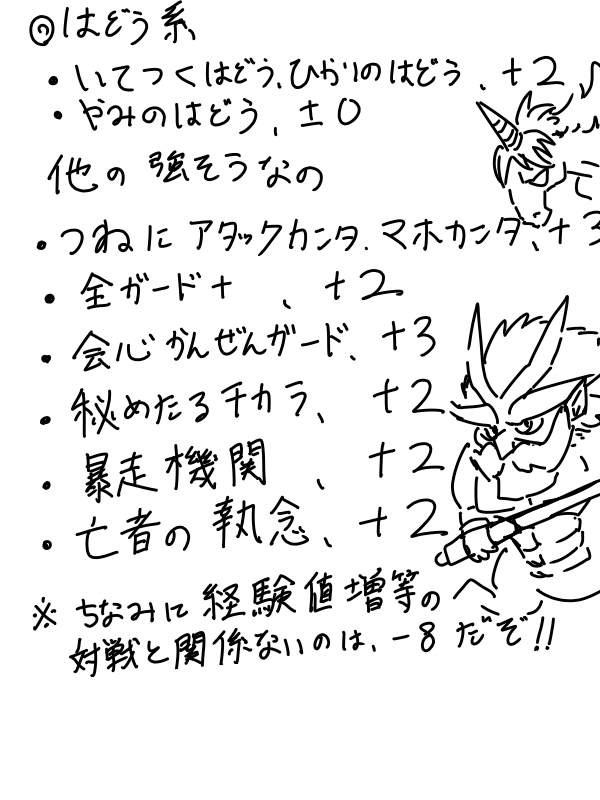 ◎はどう系
・いてつくはどう、ひかりのはどう、+2
・やみのはどう、±0
他の強そうなの
・つねにアタックカンタ、マホカンタ、+3
・全ガード+、+2
・会心かんぜんガード、+3
・秘めたるチカラ、+2
・暴走機関、+2
・亡者の執念、+2
※ちなみに経験値増等の
対戦と関係ないのは、-8だぞ!!